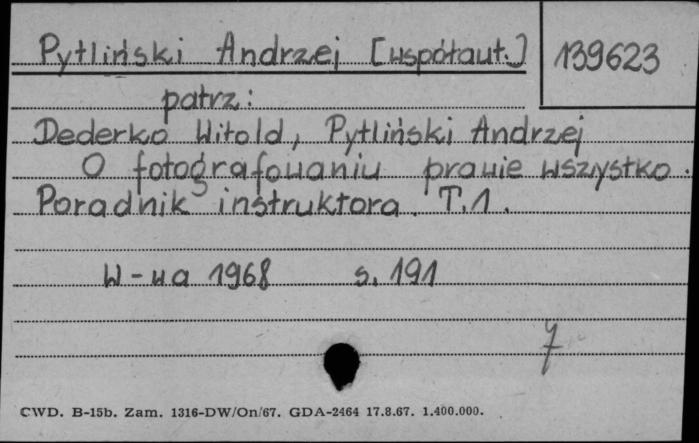 Pytliński Andrzej [współaut.] 139623
patrz:
Dederko Witold, Pytliński Andrzej
O fotografowaniu prawie wszystko.
Poradnik instruktora. T.1.
W-wa 1968 s. 191
CWD. B-15b. Zam. 1316-DW/On/67. GDA-2464 17.8.67. 1.400.000.